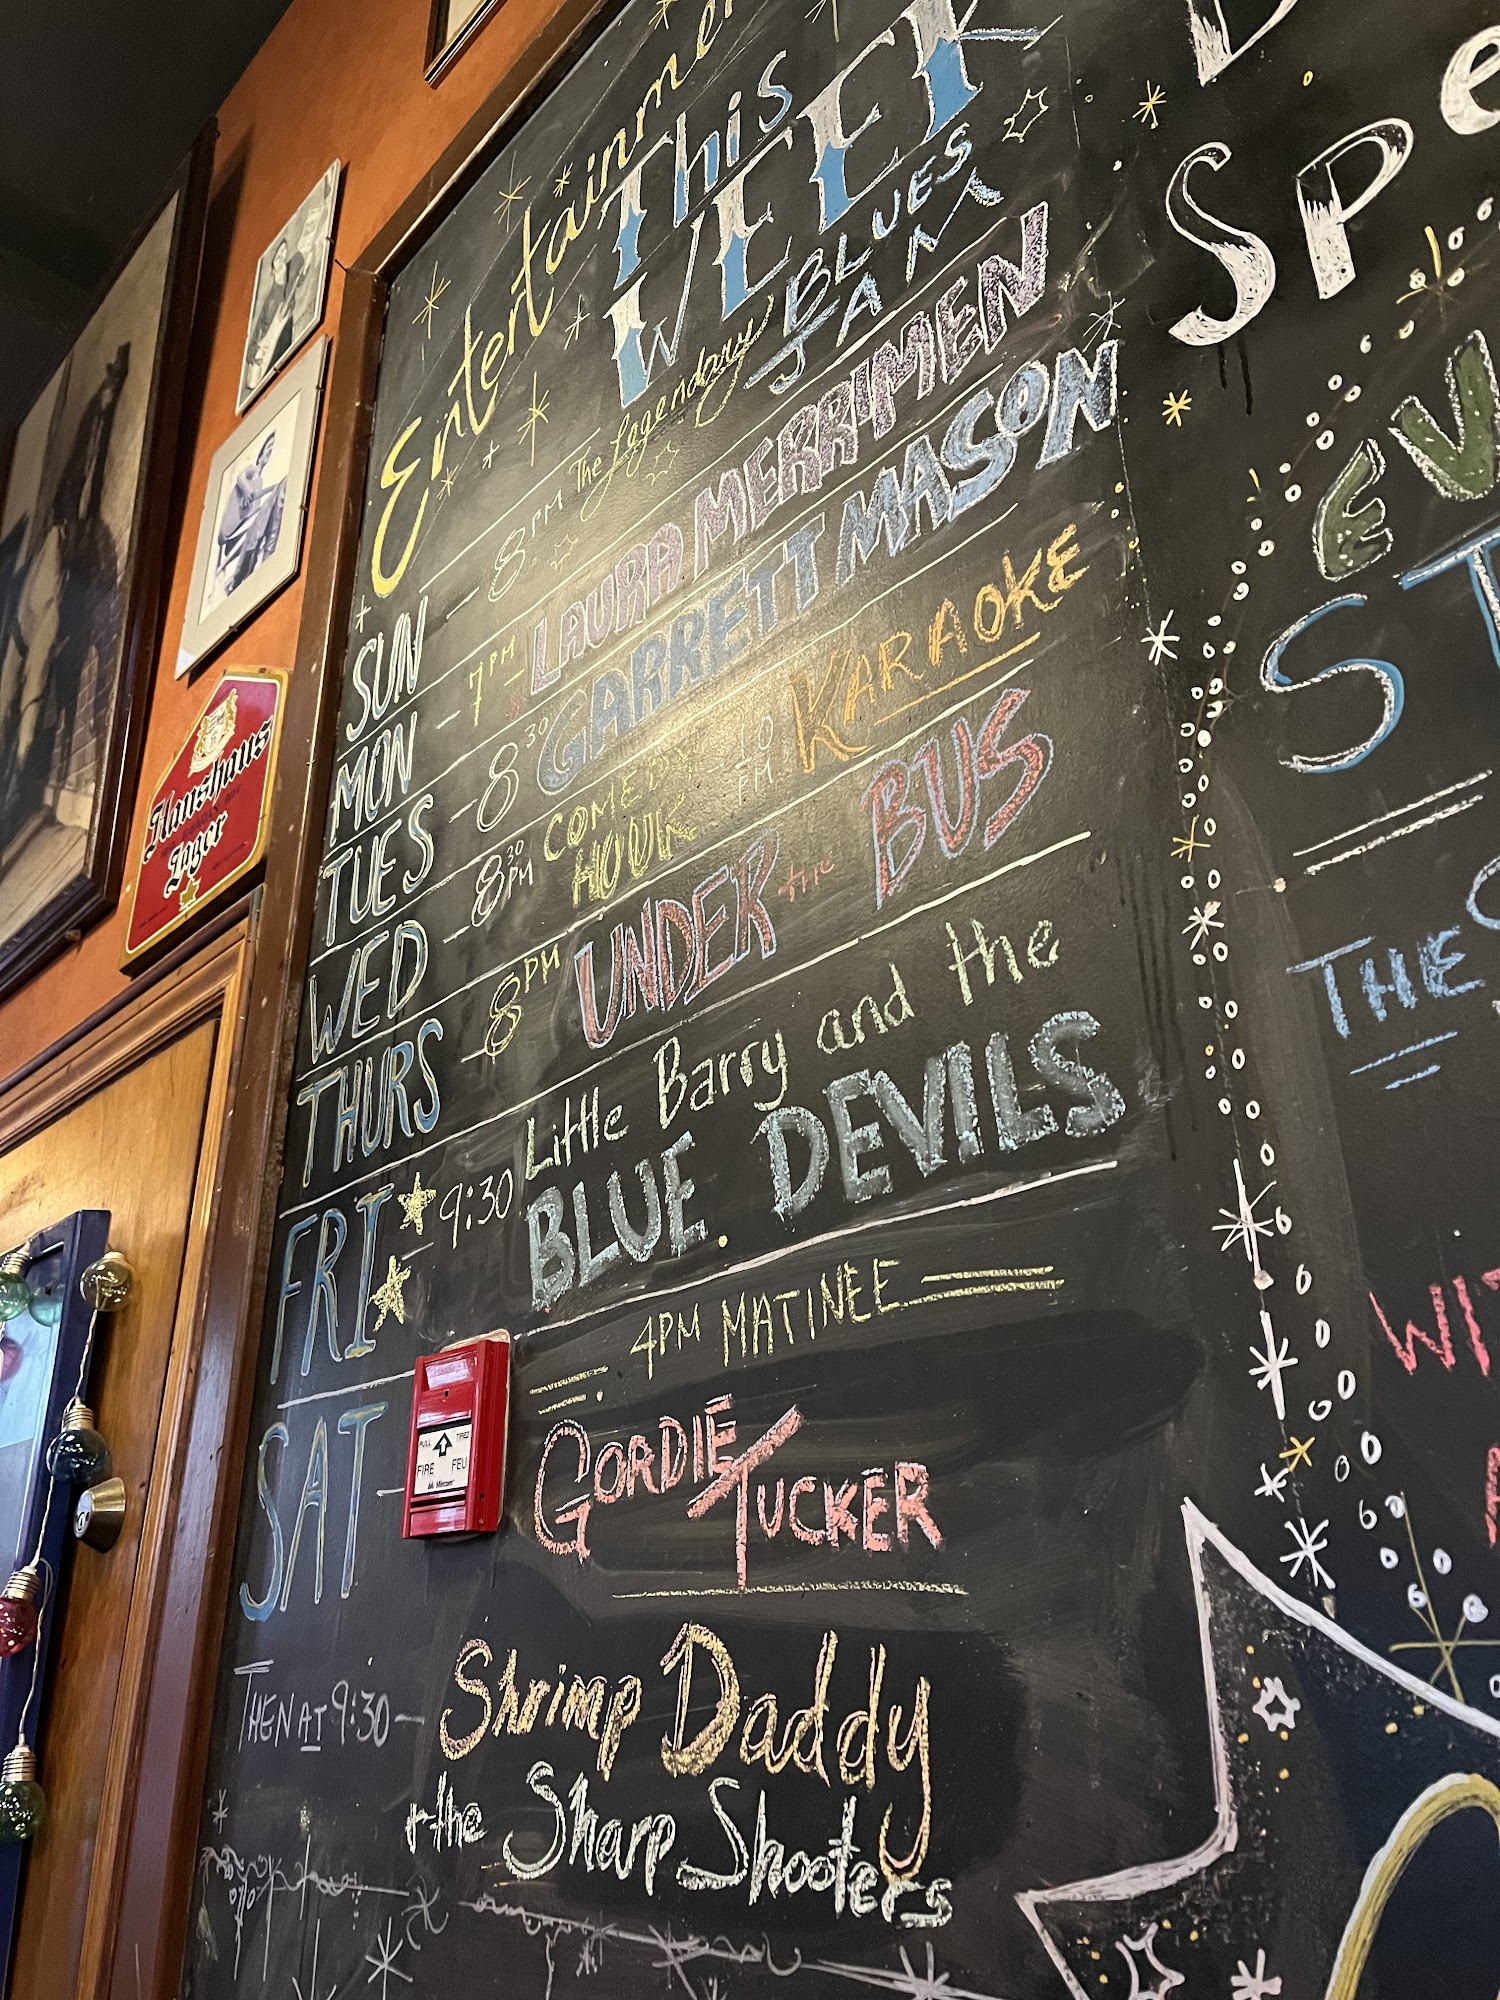 Entertainment
This
WEEK
SUN - 8PM The Legendary BLUES JAM
MON - 7PM - LAURA MERRIMEN
TUES - 8 30 GARRETT MASON
WED - 8 30 PM COMEDY HOUR 10 PM KARAOKE
THURS - 8PM UNDER the BUS
FRI - 9:30 Little Barry and the
BLUE DEVILS
SAT - 4PM MATINEE
GORDIE TUCKER
THEN AT 9:30 - Shrimp Daddy
+ the Sharp Shooters
Hanshaus
Lager
PULL TIREZ
FIRE FEU
Mircom
THE